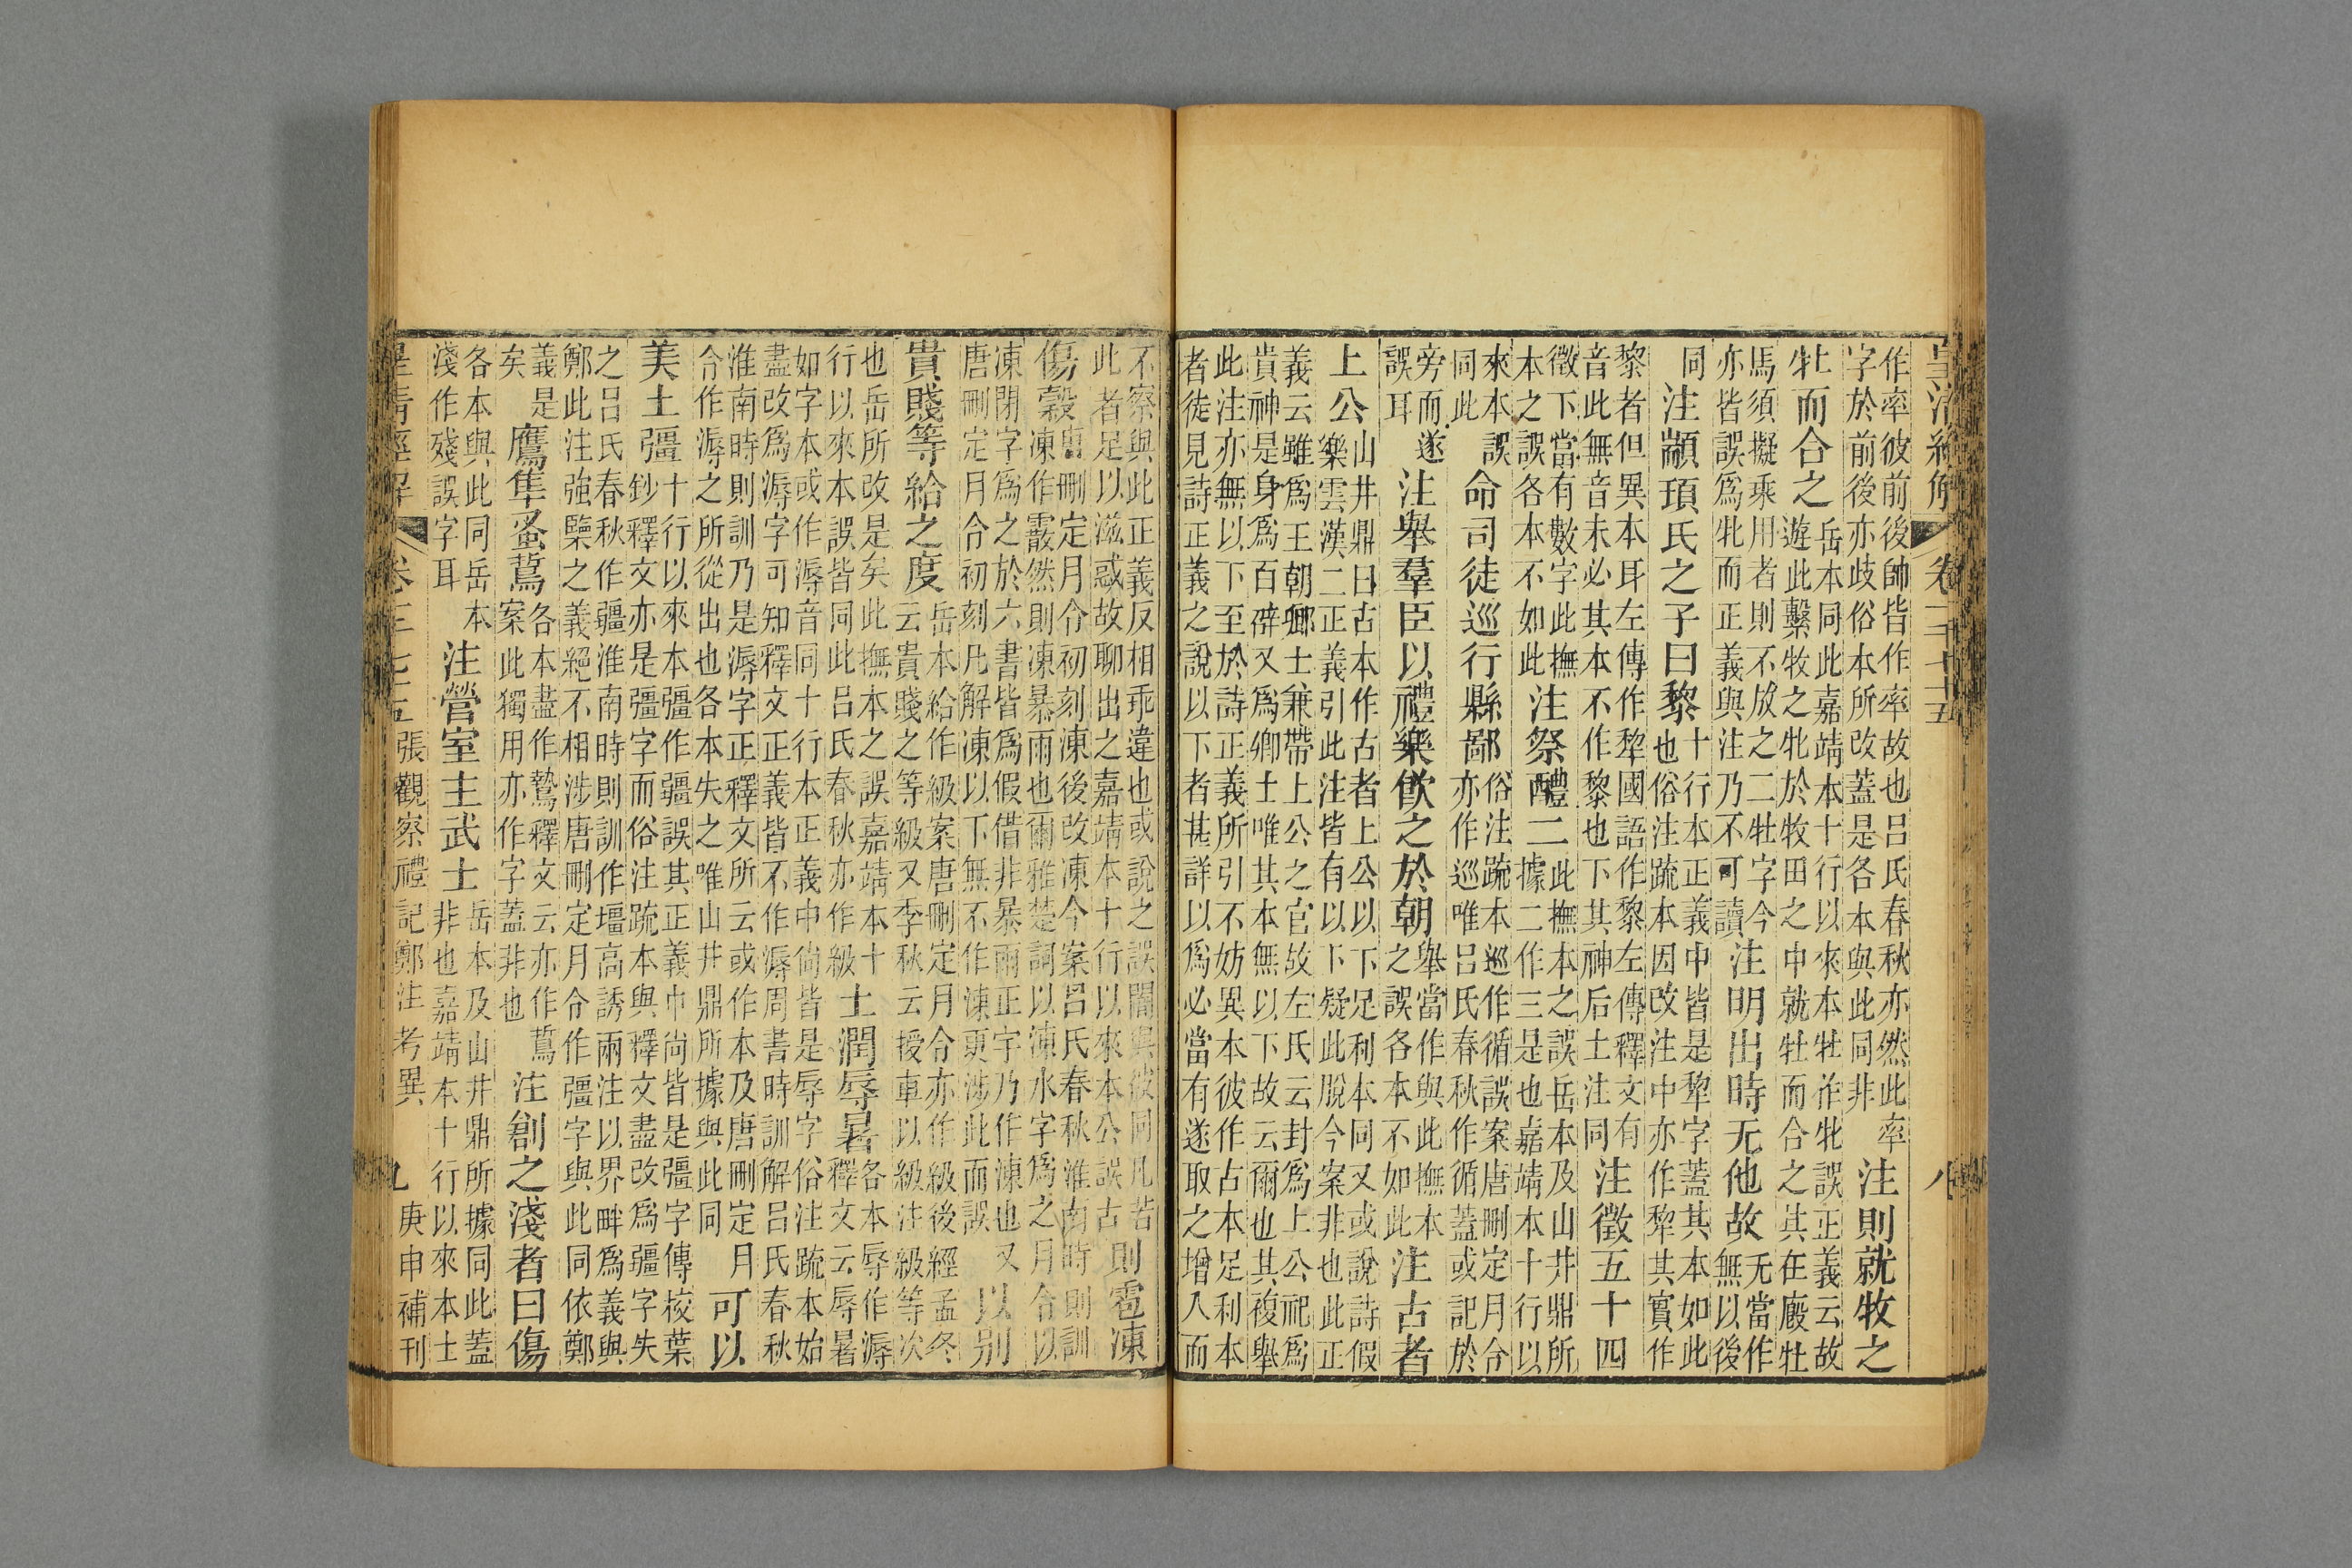 皇清經解 卷一千七十五 八
作率彼前後帥皆作率故也呂氏春秋亦然此率
字於前後亦歧俗本所改蓋是各本與此同非
注則就牧之
牡而合之
岳本同此嘉靖本十行以來本牡作牝誤正義云故
遊此繫牧之牝於牧田之中就牡而合之其在廄牡
馬須擬乘用者則不放之二牡字今
亦皆誤爲牝而正義與注乃不可讀
注明出時无他故
无當作
無以後
同
注顓頊氏之子曰黎
十行本正義中皆是犂字蓋其本如此
也俗注疏本因改注中亦作犂其實作
黎者但異本耳左傳作犂國語作黎左傳釋文有
音此無音未必其本不作黎也下其神后土注同
注徵五十四
徵下當有數字此撫
本之誤各本不如此
注祭醴二
此撫本之誤岳本及山井鼎所
據二作三是也嘉靖本十行以
來本誤
同此
命司徒巡行縣鄙
俗注疏本巡作循誤案唐刪定月令
亦作巡唯呂氏春秋作循蓋或記於
旁而遂
誤耳
注舉羣臣以禮樂飲之於朝
舉當作與此撫本
之誤各本不如此
注古者
上公
山井鼎曰古本作古者上公以下足利本同又或說詩假
樂雲漢二正義引此注皆有以下疑此脫今案非也此正
義云雖爲王朝卿士兼帶上公之官故左氏云封爲上公祀爲
貴神是身爲百辟又爲卿士唯其本無以下故云爾也其複舉
此注亦無以下至於詩正義所引不妨異本彼作古本足利本
者徒見詩正義之說以下者甚詳以爲必當有遂取之增入而
不察與此正義反相乖違也或說之誤闇與彼同凡若
此者足以滋惑故聊出之嘉靖本十行以來本公誤古
則雹凍
傷穀
唐刪定月令初刻涷後改凍今案呂氏春秋淮南時則訓
凍作霰然則涷暴雨也爾雅楚詞以涷水字爲之月令以
凍閉字爲之於六書皆爲假借非暴雨正字乃作涷也又
唐刪定月令初刻凡解凍以下無不作涷更涉此而誤
以别
貴賤等給之度
岳本給作級案唐刪定月令亦作級後經孟冬
云貴賤之等級又季秋云授車以級注級等次
也岳所改是矣此撫本之誤嘉靖本十
行以來本誤皆同此呂氏春秋亦作級
土潤辱暑
各本辱作溽
釋文云辱暑
如字本或作溽音同十行本正義中尚皆是辱字俗注疏本始
盡改爲溽字可知釋文正義皆不作溽周書時訓解呂氏春秋
淮南時則訓乃是溽字正釋文所云或作本及唐刪定月
令作溽之所從出也各本失之唯山井鼎所據與此同
可以
美土彊
十行以來本彊作疆誤其正義中尚皆是彊字傳校葉
鈔釋文亦是彊字而俗注疏本與釋文盡改爲疆字失
之呂氏春秋作疆淮南時則訓作壃高誘兩注以界畔爲義與
鄭此注強之義絕不相涉唐刪定月令作彊字與此同依鄭
義是
矣
鷹隼蚤鷙
各本盡作鷙釋文云亦作鷙
案此獨用亦作字蓋非也
注創之淺者曰傷
各本與此同岳本
淺作殘誤字耳
注營室主武士
岳本及山井鼎所據同此蓋
非也嘉靖本十行以來本士
皇清經解 卷一千七十五 張觀察禮記鄭注考異 九 庚申補刊